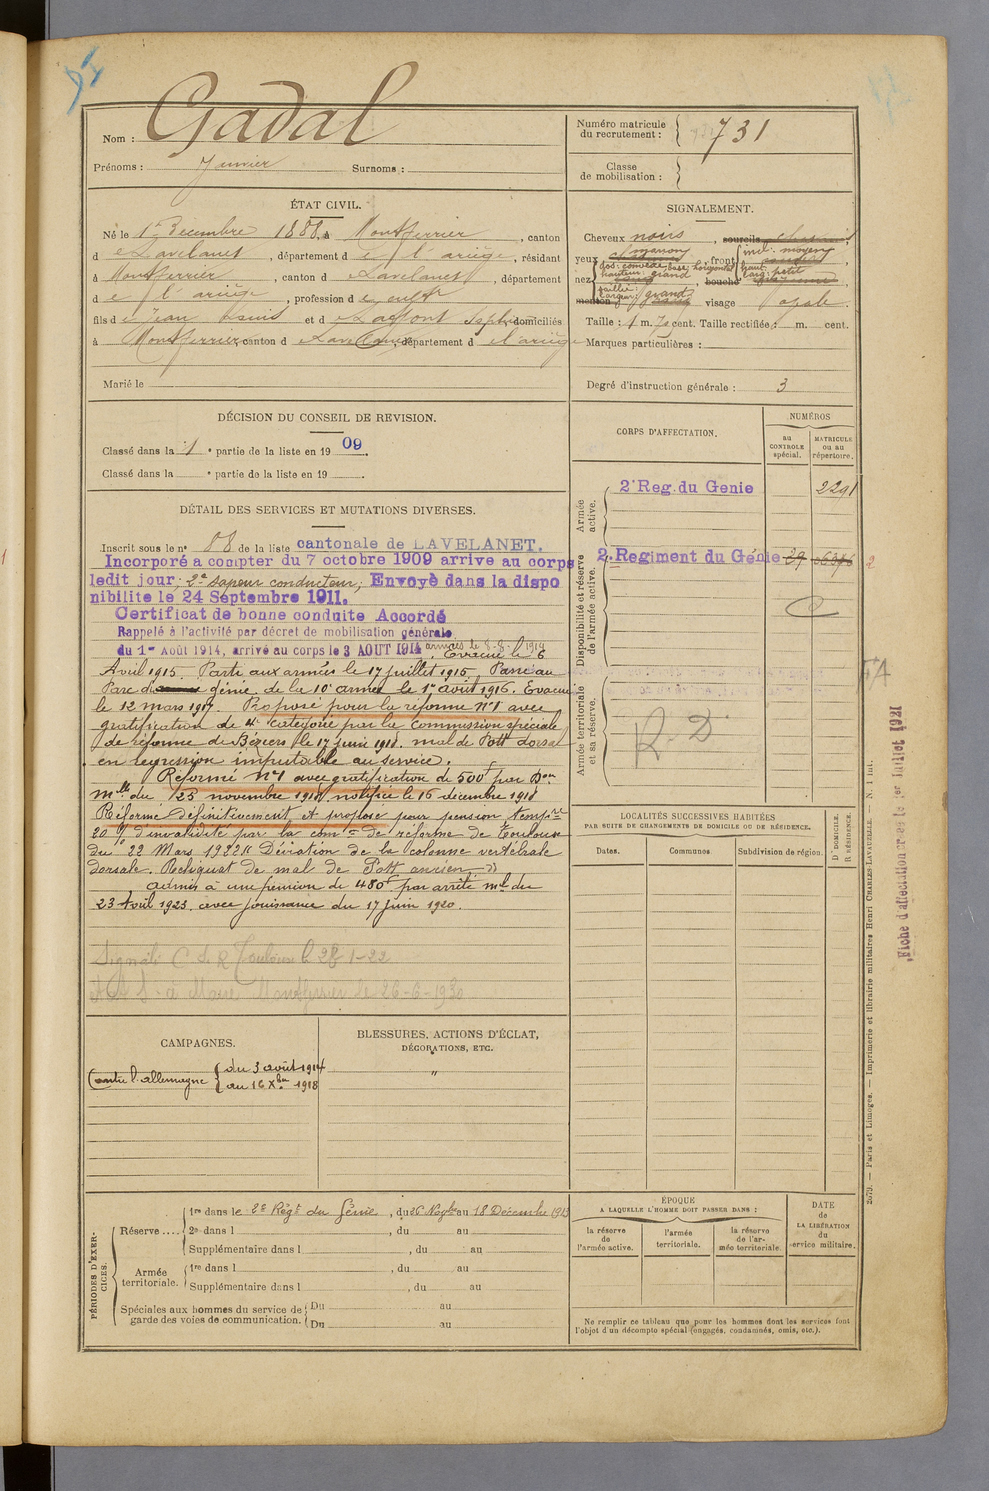 Nom : Gadal
Prénoms : Janvier Surnoms :
Numéro matricule
du recrutement : 731
Classe
de mobilisation :
ÉTAT CIVIL.
Né le 1er Décembre 1888, à Montferrier, canton
de Lavelanet, département de l'ariège, résidant
à Montferrier, canton de Lavelanet, département
de l'ariège, profession de
fils de Jean et de Laffont domiciliés
à Montferrier canton de Lavelanet, département de l'ariège
Marié le
SIGNALEMENT.
Cheveux noirs, sourcils
yeux marron, front incl: moyen
haut:
larg: petit
nez dos: convexe base: horizontal
hauteur: grand
saillie:
largeur: grand
bouche
menton visage ovale
Taille : 1 m. cent. Taille rectifiée : m. cent.
Marques particulières :
Degré d'instruction générale : 3
DÉCISION DU CONSEIL DE REVISION.
Classé dans la 1e partie de la liste en 1909.
Classé dans la e partie de la liste en 19 .
CORPS D'AFFECTATION.
NUMÉROS
au
CONTROLE
spécial.
MATRICULE
ou au
répertoire.
Armée
active.
2e Reg. du Genie 2291
Disponibilité et réserve
de l'armée active.
2e Regiment du Génie 29
Armée territoriale
et sa réserve.
R. D.
DÉTAIL DES SERVICES ET MUTATIONS DIVERSES.
Inscrit sous le n° 88 de la liste cantonale de LAVELANET.
Incorporé a compter du 7 octobre 1909 arrive au corps
ledit jour: 2e sapeur conducteur; Envoyé dans la dispo
nibilite le 24 Septembre 1911.
Certificat de bonne conduite Accordé
Rappelé à l'activité par décret de mobilisation générale
du 1er Août 1914, arrivé au corps le 3 AOUT 1914 armées le 8-8-1914 Evacué le 6
Avril 1915. Parti aux armées le 17 juillet 1915. Passé au
Parc du génie de la 10e armée le 1er août 1916. Evacué
le 12 mars 1917. Proposé pour la réforme N°1 avec
gratification de 4e catégorie par la commission spéciale
de réforme de Béziers le 17 juin 1918. mal de Pott dorsal
en régression imputable au service.
Réformé N°1 avec gratification de 500f par Don
mlle du 25 novembre 1918, notifiée le 16 décembre 1918
Réformé définitivement et proposé pour pension temp.re
20 % d'invalidité par la comon de réforme de Toulouse
du 22 Mars 1922 "Déviation de la colonne vertébrale
dorsale. Reliquat de mal de Pott ancien."
admis à une pension de 480f par arrêté mel du
23 Avril 1923, avec jouissance du 17 juin 1920.
Signalé C S R Toulouse le 28 1-22
à Maire Montferrier le 26-6-1930
LOCALITÉS SUCCESSIVES HABITÉES
PAR SUITE DE CHANGEMENTS DE DOMICILE OU DE RÉSIDENCE.
Dates. Communes. Subdivision de région. D DOMICILE. R RÉSIDENCE.
CAMPAGNES.
Contre l'allemagne du 3 août 1914
au 16 Xbre 1918
BLESSURES, ACTIONS D'ÉCLAT,
DÉCORATIONS, ETC.
"
PÉRIODES D'EXERCICES.
Réserve .... 1re dans le 2e Régt du Génie, du 26 Novbre au 18 Décembre 1913
2e dans l , du au
Supplémentaire dans l , du au
Armée
territoriale. 1re dans l , du au
Supplémentaire dans l , du au
Spéciales aux hommes du service de
garde des voies de communication. Du au
Du au
ÉPOQUE
A LAQUELLE L'HOMME DOIT PASSER DANS :
la réserve
de
l'armée active.
l'armée
territoriale.
la réserve
de l'ar-
mée territoriale.
DATE
de
LA LIBÉRATION
du
service militaire.
Ne remplir ce tableau que pour les hommes dont les services font
l'objet d'un décompte spécial (engagés, condamnés, omis, etc.).
2679. — Paris et Limoges. — Imprimerie et librairie militaires Henri CHARLES-LAVAUZELLE. — N. 1 int.
Fiche d'affectation créée le 1er Juillet 1921